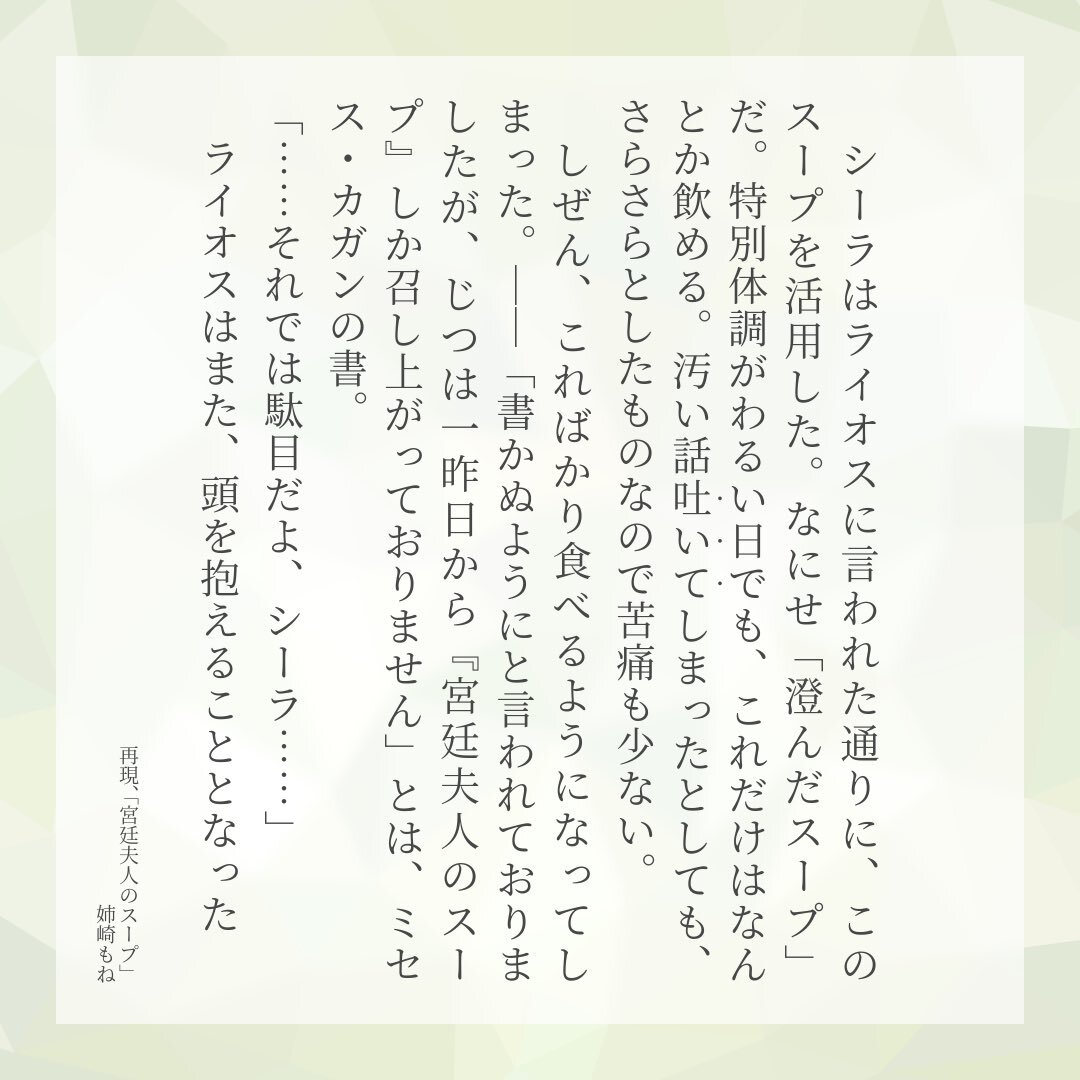 シーラはライオスに言われた通りに、この
スープを活用した。なにせ「澄んだスープ」
だ。特別体調がわるい日でも、これだけはなん
とか飲める。汚い話吐いてしまったとしても、
さらさらとしたものなので苦痛も少ない。
しぜん、こればかり食べるようになってし
まった。――「書かぬようにと言われておりま
したが、じつは一昨日から『宮廷夫人のスー
プ』しか召し上がっておりません」とは、ミセ
ス・カガンの書。
「……それでは駄目だよ、シーラ……」
ライオスはまた、頭を抱えることとなった
再現、「宮廷夫人のスープ」
姉崎もね